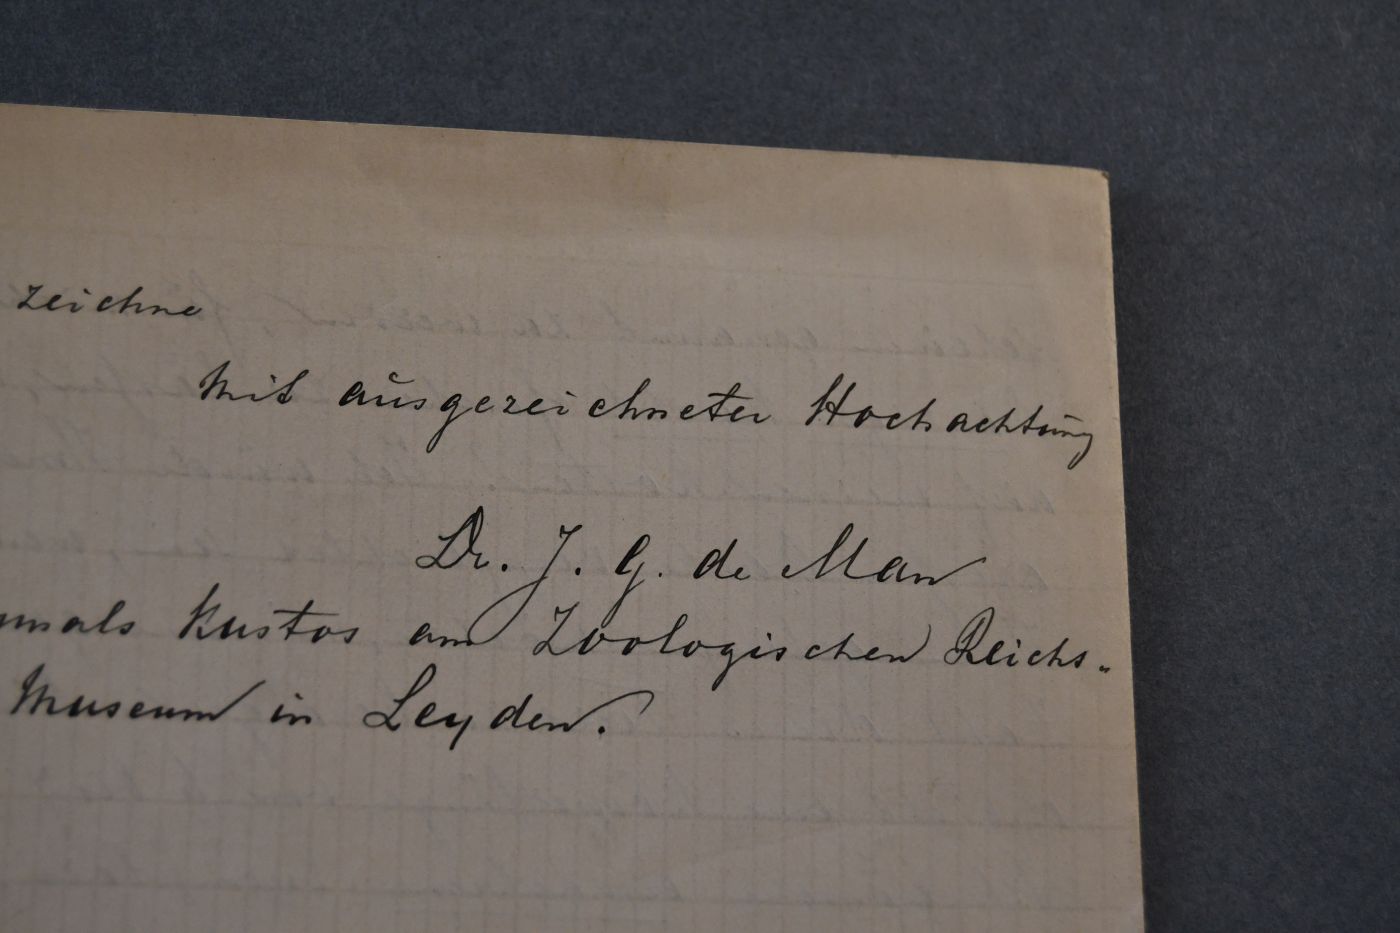 zeichne
Mit ausgezeichneter Hochachtung
Dr. J. G. de Man
Kustos am Zoologischen Reichs-
Museum in Leyden.